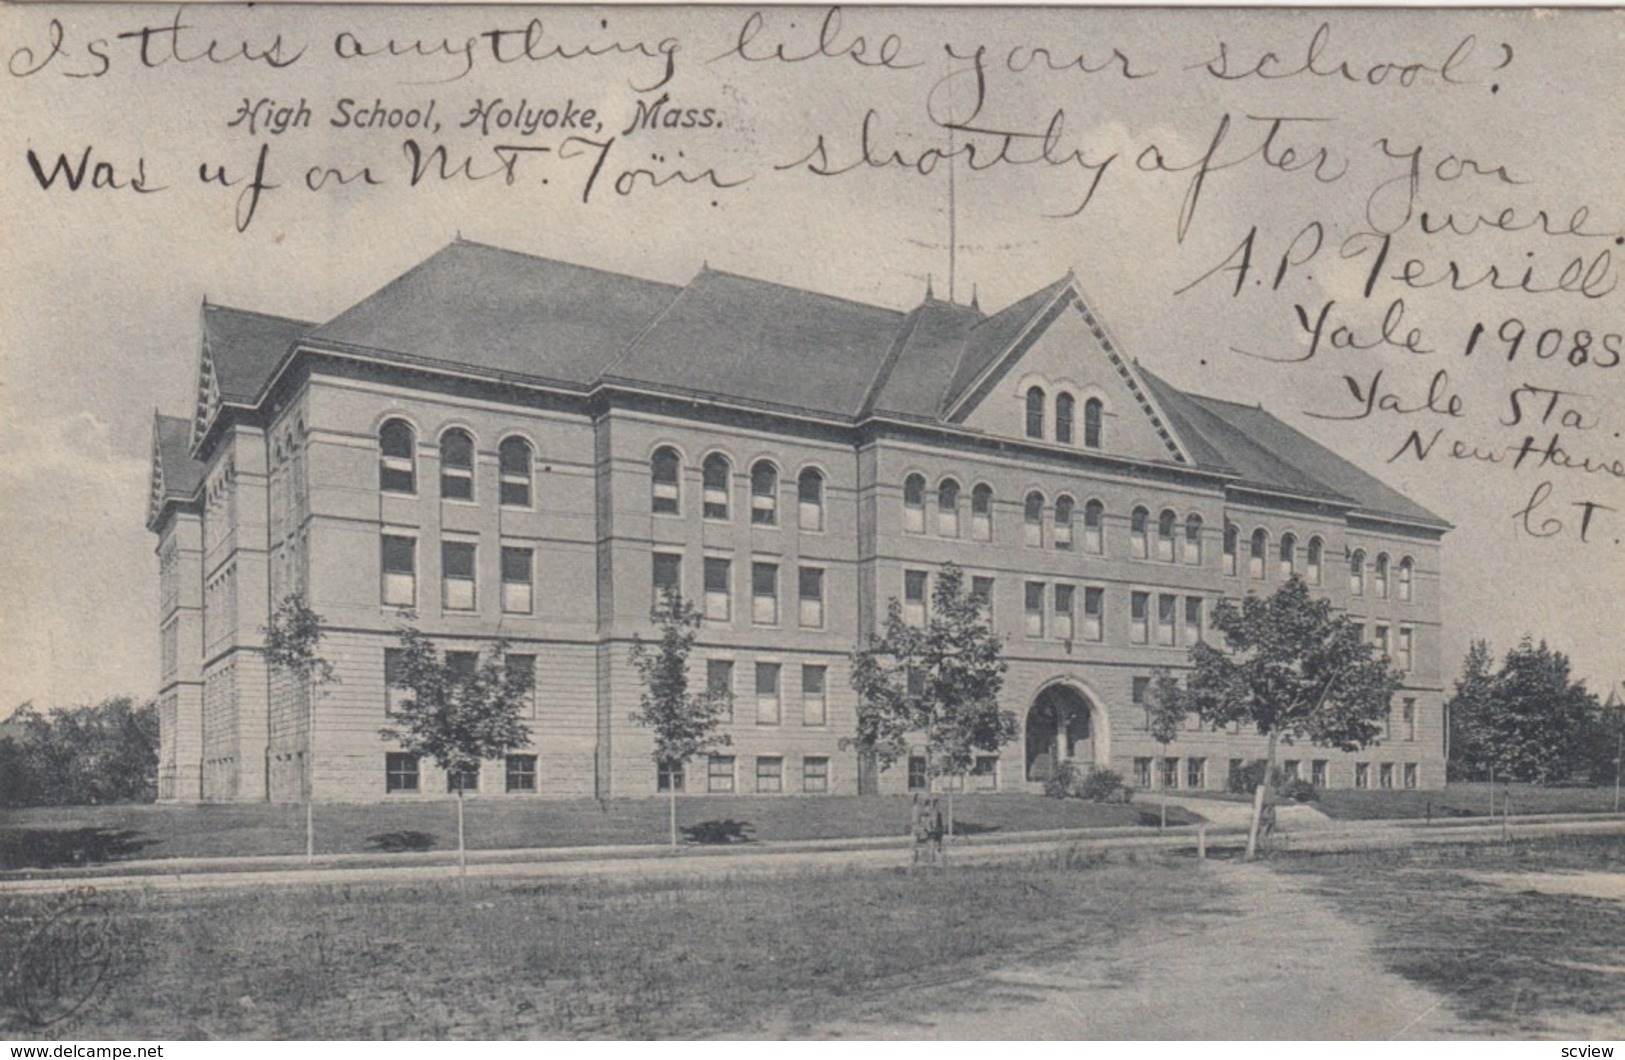 Is this anything like your school?
High School, Holyoke, Mass.
Was up on Mt. Tom shortly after you
were.
A.P. Terrill
Yale 1908S
Yale Sta.
New Haven
Ct.
www.delcampe.net
scview